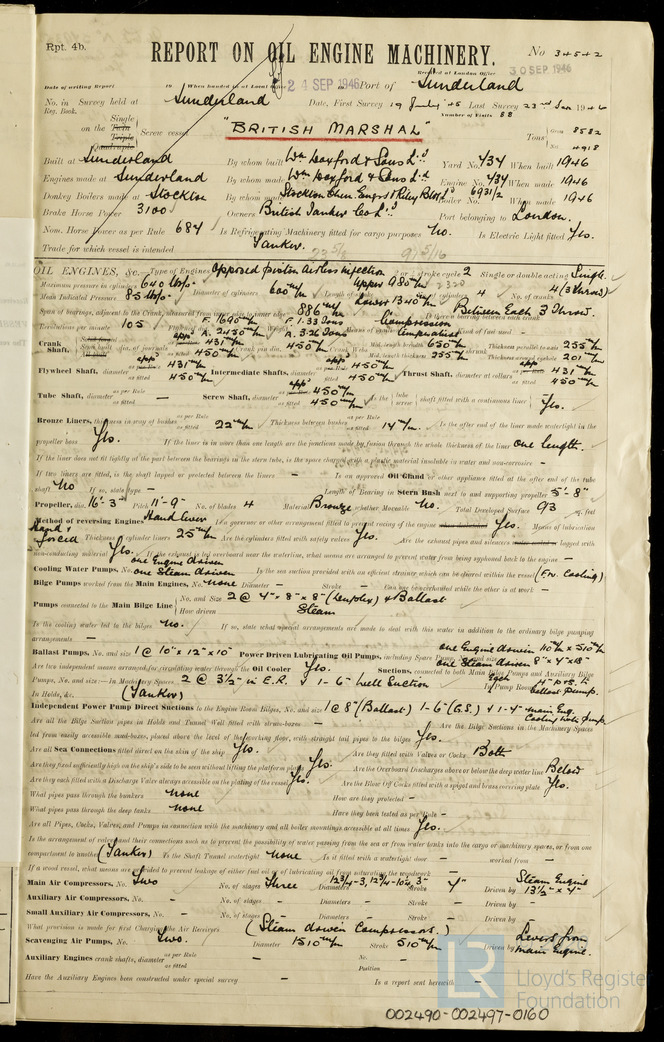 Rpt. 4b.
REPORT ON OIL ENGINE MACHINERY.
No 34542
Received at London Office 30 SEP 1946
Date of writing Report 19 When handed in at Local Office 24 SEP 1946 Port of Sunderland
No. in Reg. Book. Survey held at Sunderland Date, First Survey 19 Last Survey 23rd 1946
Number of Visits 88
on the Single Twin Triple Quadruple Screw vessel "BRITISH MARSHAL" Tons Gross 8582 Net 4918
Built at Sunderland By whom built Wm Doxford & Sons Ltd Yard No. 734 When built 1946
Engines made at Sunderland By whom made Wm Doxford & Sons Ltd Engine No. 734 When made 1946
Donkey Boilers made at Stockton By whom made Stockton Chem. Engrs & Riley Blrs Ld Boiler No. 6931/2 When made 1946
Brake Horse Power 3100 Owners British Tanker Co Ltd Port belonging to London.
Nom. Horse Power as per Rule 684 Is Refrigerating Machinery fitted for cargo purposes No. Is Electric Light fitted Yes.
Trade for which vessel is intended Tanker.
OIL ENGINES, &c. Type of Engines Opposed piston Airless Injection 2 or 4 stroke cycle 2 Single or double acting Single
Maximum pressure in cylinders 640 lbs/o" Diameter of cylinders 600 m/m Upper 980 m/m No. of cylinders 4 No. of cranks 4 (3 throw)
Mean Indicated Pressure 85 lbs/o" Lower 1340 m/m
Span of bearings, adjacent to the Crank, measured from inner edge to inner edge 886 m/m Is there a bearing between each crank Between Each 3 Throw.
Revolutions per minute 105 F. 1690 m/m A. 2450 m/m F. 1.33 Tons A. 3.26 Tons Means of ignition Compression Kind of fuel used
Crank Shaft, dia. of journals as per Rule appd 431 m/m as fitted 450 m/m Crank pin dia. 450 m/m Crank Webs Mid. length breadth 650 m/m Mid. length thickness 255 m/m Thickness parallel to axis 255 m/m Thickness around eyehole 201 m/m
Flywheel Shaft, diameter appd 431 m/m as fitted 450 m/m Intermediate Shafts, diameter appd 431 m/m as fitted 450 m/m Thrust Shaft, diameter at collars appd 431 m/m as fitted 450 m/m
Tube Shaft, diameter as per Rule as fitted — Screw Shaft, diameter appd 450 m/m as fitted 450 m/m Is the tube screw shaft fitted with a continuous liner Yes.
Bronze Liners, thickness in way of bushes as per Rule as fitted 22 m/m Thickness between bushes as per Rule as fitted 14 m/m Is the after end of the liner made watertight in the
propeller boss Yes. If the liner is in more than one length are the junctions made by fusion through the whole thickness of the liner one length.
If the liner does not fit tightly at the part between the bearings in the stern tube, is the space charged with a plastic material insoluble in water and non-corrosive —
If two liners are fitted, is the shaft lapped or protected between the liners — Is an approved Oil Gland or other appliance fitted at the after end of the tube
shaft No If so, state type — Length of Bearing in Stern Bush next to and supporting propeller 5'-8"
Propeller, dia. 16'-3" Pitch 11'-9" No. of blades 4 Material Bronze whether Moveable No. Total Developed Surface 93 sq. feet
Method of reversing Engines Hand lever Is a governor or other arrangement fitted to prevent racing of the engine Yes. Means of lubrication
Hand & forced Thickness of cylinder liners 25 m/m Are the cylinders fitted with safety valves Yes. Are the exhaust pipes and silencers lagged with
non-conducting material Yes. If the exhaust is led overboard near the waterline, what means are arranged to prevent water from being syphoned back to the engine —
Cooling Water Pumps, No. one Engine driven one Steam driven Is the sea suction provided with an efficient strainer which can be cleared within the vessel (F.W. Cooling)
Bilge Pumps worked from the Main Engines, No. none Diameter — Stroke — Can one be overhauled while the other is at work —
Pumps connected to the Main Bilge Line No. and Size 2 @ 4" x 8" x 8" (Duplex) & Ballast
How driven Steam
Is the cooling water led to the bilges No. If so, state what special arrangements are made to deal with this water in addition to the ordinary bilge pumping
arrangements —
Ballast Pumps, No. and size 1 @ 10" x 12" x 10" Power Driven Lubricating Oil Pumps, including Spare Pump, No. and size one Engine driven 110 m/m x 510 m/m one Steam driven 8" x 4" x 18"
Are two independent means arranged for circulating water through the Oil Cooler Yes. Suctions, connected to both Main Bilge Pumps and Auxiliary Bilge
Pumps, No. and size:—In Machinery Spaces 2 @ 3½" in E.R. 1-6" Well Suction In Pump Room
In Holds, &c. (Tanker) ballast pump.
Independent Power Pump Direct Suctions to the Engine Room Bilges, No. and size 1 @ 8" (Ballast) 1-6" (G.S.) & 1-4" main Eng. Cooling Water pump
Are all the Bilge Suction pipes in Holds and Tunnel Well fitted with strum-boxes — Are the Bilge Suctions in the Machinery Spaces
led from easily accessible mud-boxes, placed above the level of the working floor, with straight tail pipes to the bilges Yes.
Are all Sea Connections fitted direct on the skin of the ship Yes. Are they fitted with Valves or Cocks Both
Are they fixed sufficiently high on the ship's side to be seen without lifting the platform plates Yes. Are the Overboard Discharges above or below the deep water line Below
Are they each fitted with a Discharge Valve always accessible on the plating of the vessel Yes. Are the Blow Off Cocks fitted with a spigot and brass covering plate Yes.
What pipes pass through the bunkers none How are they protected —
What pipes pass through the deep tanks none Have they been tested as per Rule —
Are all Pipes, Cocks, Valves, and Pumps in connection with the machinery and all boiler mountings accessible at all times Yes.
Is the arrangement of valves and their connections such as to prevent the possibility of water passing from the sea or from water tanks into the cargo or machinery spaces, or from one
compartment to another (Tanker) Is the Shaft Tunnel watertight none Is it fitted with a watertight door — worked from —
If a wood vessel, what means are provided to prevent leakage of either fuel oil or of lubricating oil from saturating the woodwork —
Main Air Compressors, No. Two No. of stages Three Diameters 12¾-3, 12¾-10¼, 3" Stroke 4" Driven by Steam Engine 13½" x 4"
Auxiliary Air Compressors, No. — No. of stages — Diameters — Stroke — Driven by —
Small Auxiliary Air Compressors, No. — No. of stages — Diameters — Stroke — Driven by —
What provision is made for first Charging the Air Receivers (Steam driven Compressors.)
Scavenging Air Pumps, No. Two. Diameter 1510 m/m Stroke 510 m/m Driven by Levers from main Engine.
Auxiliary Engines crank shafts, diameter as per Rule as fitted — No. Position —
Have the Auxiliary Engines been constructed under special survey — Is a report sent herewith —
Lloyd's Register
Foundation
002490-002497-0160